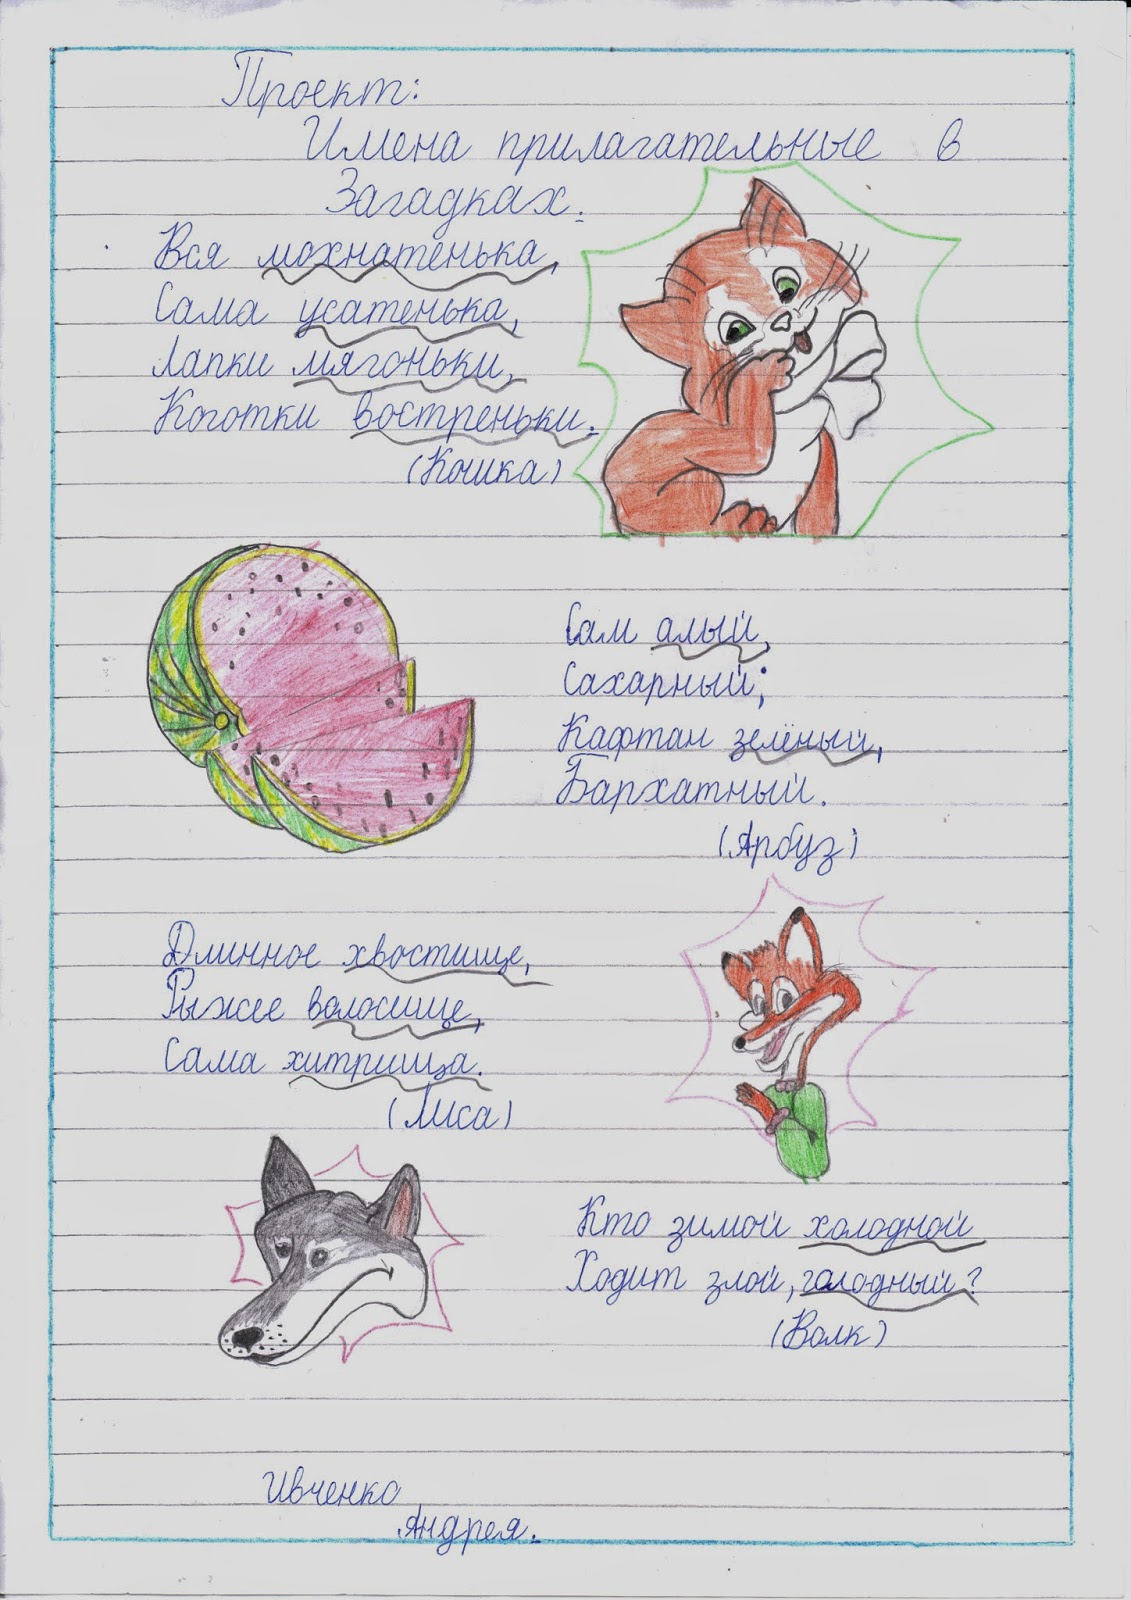 Проект:
Имена прилагательные в
Загадках.
Вся мохнатенька,
Сама усатенька,
Лапки мягоньки,
Коготки востреньки.
(Кошка)
Сам алый,
Сахарный;
Кафтан зелёный,
Бархатный.
(Арбуз)
Длинное хвостище,
Рыжее волосище,
Сама хитрища.
(Лиса)
Кто зимой холодной
Ходит злой, голодный?
(Волк)
Ивченко
Андрея.